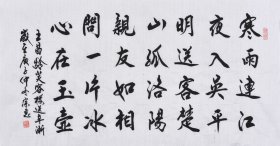 寒雨連江
夜入吳平
明送客楚
山孤洛陽
親友如相
問一片冰
心在玉壺
王昌齡芙蓉樓送辛漸
庚子仲冬